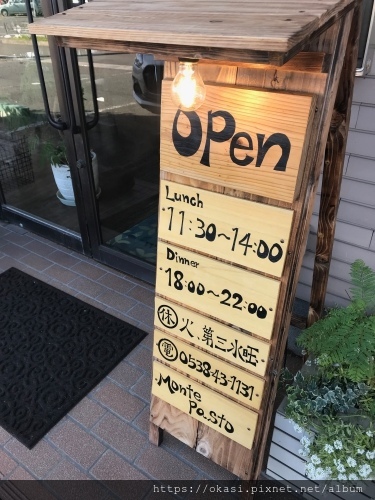 open
Lunch
11:30~14:00
Dinner
18:00~22:00
休 火、第三水曜
電 0538-43-1131
Monte
Pasto
https://okasi.pixnet.net/album